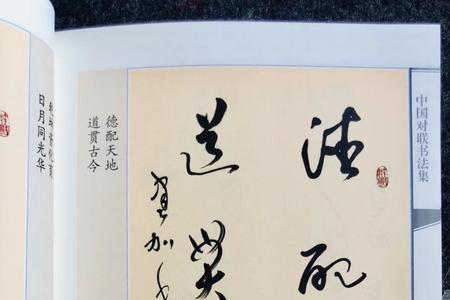 中国对联书法集
德配
道贯
德配天地
道贯古今
日月同光华